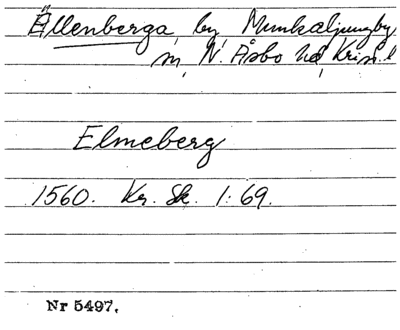 Ällenberga, by, Munkaljungby
sn, N. Åsbo hd, Krist. l
Elmeberg
1560. Kr. Sk. 1:69.
Nr 5497.